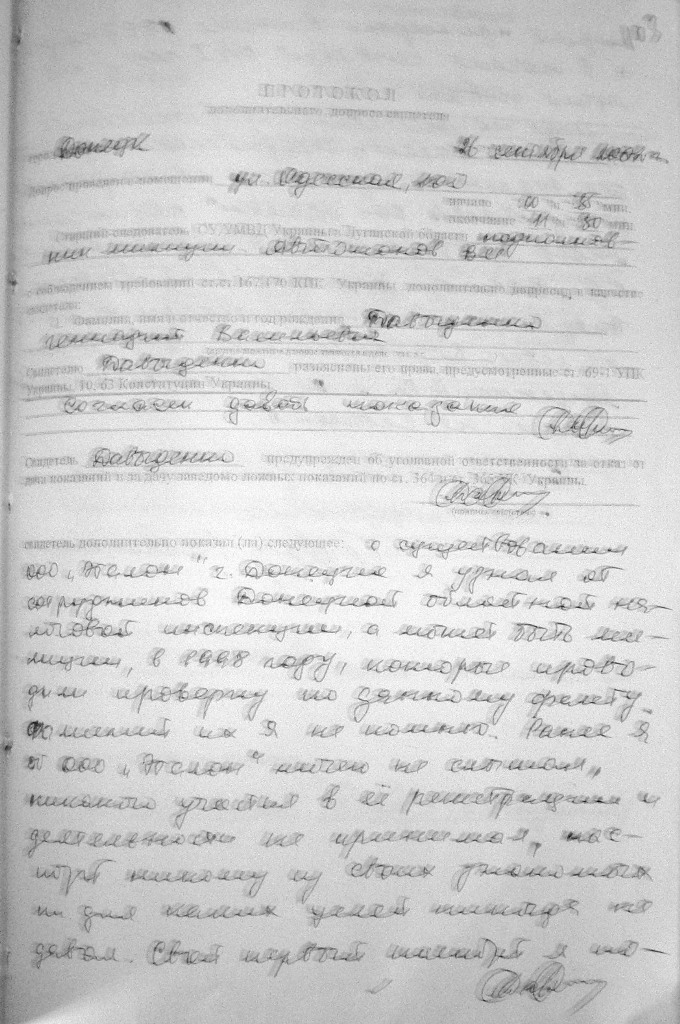 ПРОТОКОЛ
дополнительного допроса свидетеля
Донецк 26 сентября
ул. Одесской,
начало час 35 мин
окончание 11 час 30 мин
Старший следователь СУ УМВД Украины в Луганской области подполков-
ник милиции
с соблюдением требований ст.ст. 167, 170 КПК Украины дополнительно допросил в качестве
свидетеля:
1. Фамилия, имя и отчество и год рождения Давыденко
Геннадий Васильевич
Свидетелю Давыденко разъяснены его права, предусмотренные ст. 69-1 УПК
Украины, 10, 63 Конституции Украины.
согласен давать показания
Свидетель Давыденко предупрежден об уголовной ответственности за отказ от
дачи показаний и за дачу заведомо ложных показаний по ст. УК Украины.
свидетель дополнительно показал (ла) следующее: о существовании
ООО „Эталон" г. Донецка я узнал от
сотрудников Донецкой областной на-
логовой инспекции, а может быть ми-
лиции, в 1998 году, которые прово-
дили проверку по данному факту.
Фамилий их я не помню. Ранее я
о ООО „Эталон" ничего не слышал,
никакого участия в её регистрации и
деятельности не принимал, пас-
порт никому из своих знакомых
ни для каких целей никогда не
давал. Свой первый паспорт я по-